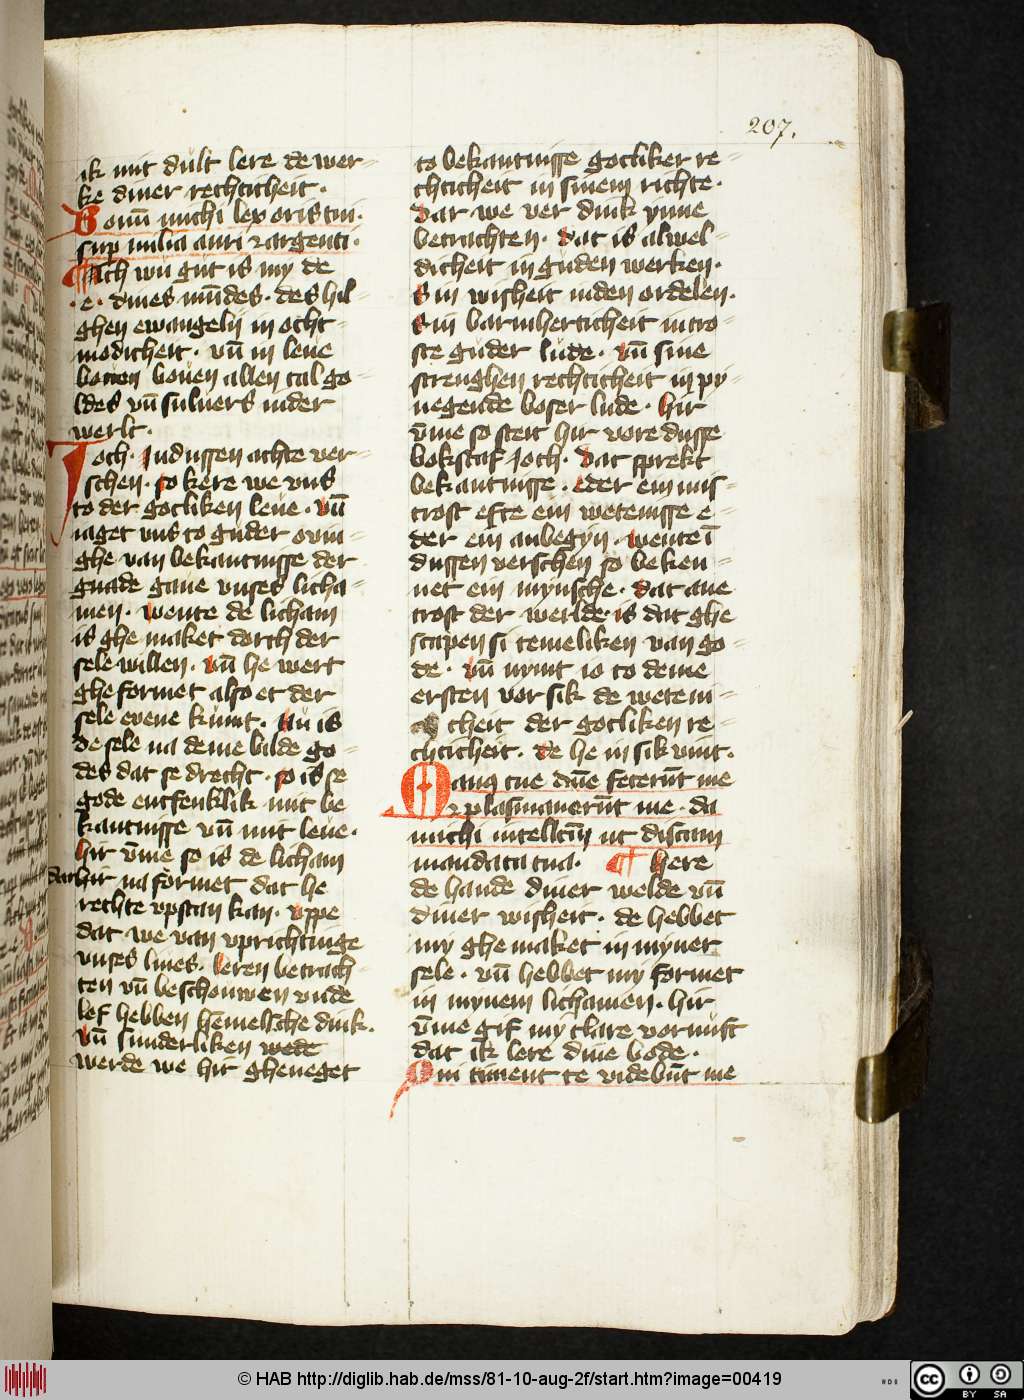 207.
ik mit dult lere de wer-
ke diner rechticheit.
Bonū michi lex oris tui.
sup milia auri ⁊ argenti.
¶ Ach wu gut is my de
.e. dines mūdes. des hil-
ghen ewangelij in otht-
modicheit. vn̄ in leue
bouen allen tal go-
ldes vn̄ suluers in der
werlt.
Joth. In dussen achte ver-
schen. so kere we vns
to der gotliken leue. vn̄
naget vns to guder ouin-
ghe van bekantnisse der
gnade gaue vnses licha-
men. wente de licham
is ghe maket dorch der
sele willen. vn̄ he wert
ghe formet also et der
sele euene kumt. Nu is
de sele na deme bilde go-
des dat se drecht. so is se
gode entfenklik mit be
kantnisse vn̄ mit leue.
hir v̄me so is de licham
dar hir na formet dat he
rechte vpstan kan. vppe
dat we van vprichtinge
vnses liues. leren betrach-
ten vn̄ beschouwen vnde
lef hebben hēmelsche dink.
vn̄ sunderliken wede
werde we hir gheneget
to bekantnisse gotliker re-
chticheit in sinem richte.
Dar we ver dink ynne
betrachten. dat is alwel-
dicheit in guden werken.
Sin wisheit in den ordelen.
Sin barmherticheit in tro-
ste guder lude. vn̄ sine
strenghen rechticheit in py-
negende boser lude. hir
v̄me so steit hir vore dusse
bokstaf Joth. dat sprekt
bekantnisse. eder ein mis-
trost efte ein wetenisse e-
der ein anbegyn. wente ī
dussen verschen so beken-
net ein mynsche. dat aue
trost der werlde. is dat ghe
scapen si temeliken van go-
de. vn̄ nymt io to deme
ersten vor sik de weteni-
cheit der gotliken re-
chticheit. de he in sik vint.
Manꝯ tue dn̄e fecerūt me
⁊ plasmauerūt me. da
michi intellc̄m ut discam
mandata tua. ¶ here
de hande diner welde vn̄
diner wisheit. de hebbet
my ghe maket in myner
sele. vn̄ hebbet my formet
in mynem lichamen. hir
v̄me gif my clare vornuft
dat ik lere dine bode.
Qui timent te videbūt me
© HAB http://diglib.hab.de/mss/81-10-aug-2f/start.htm?image=00419
HAB
cc
BY SA